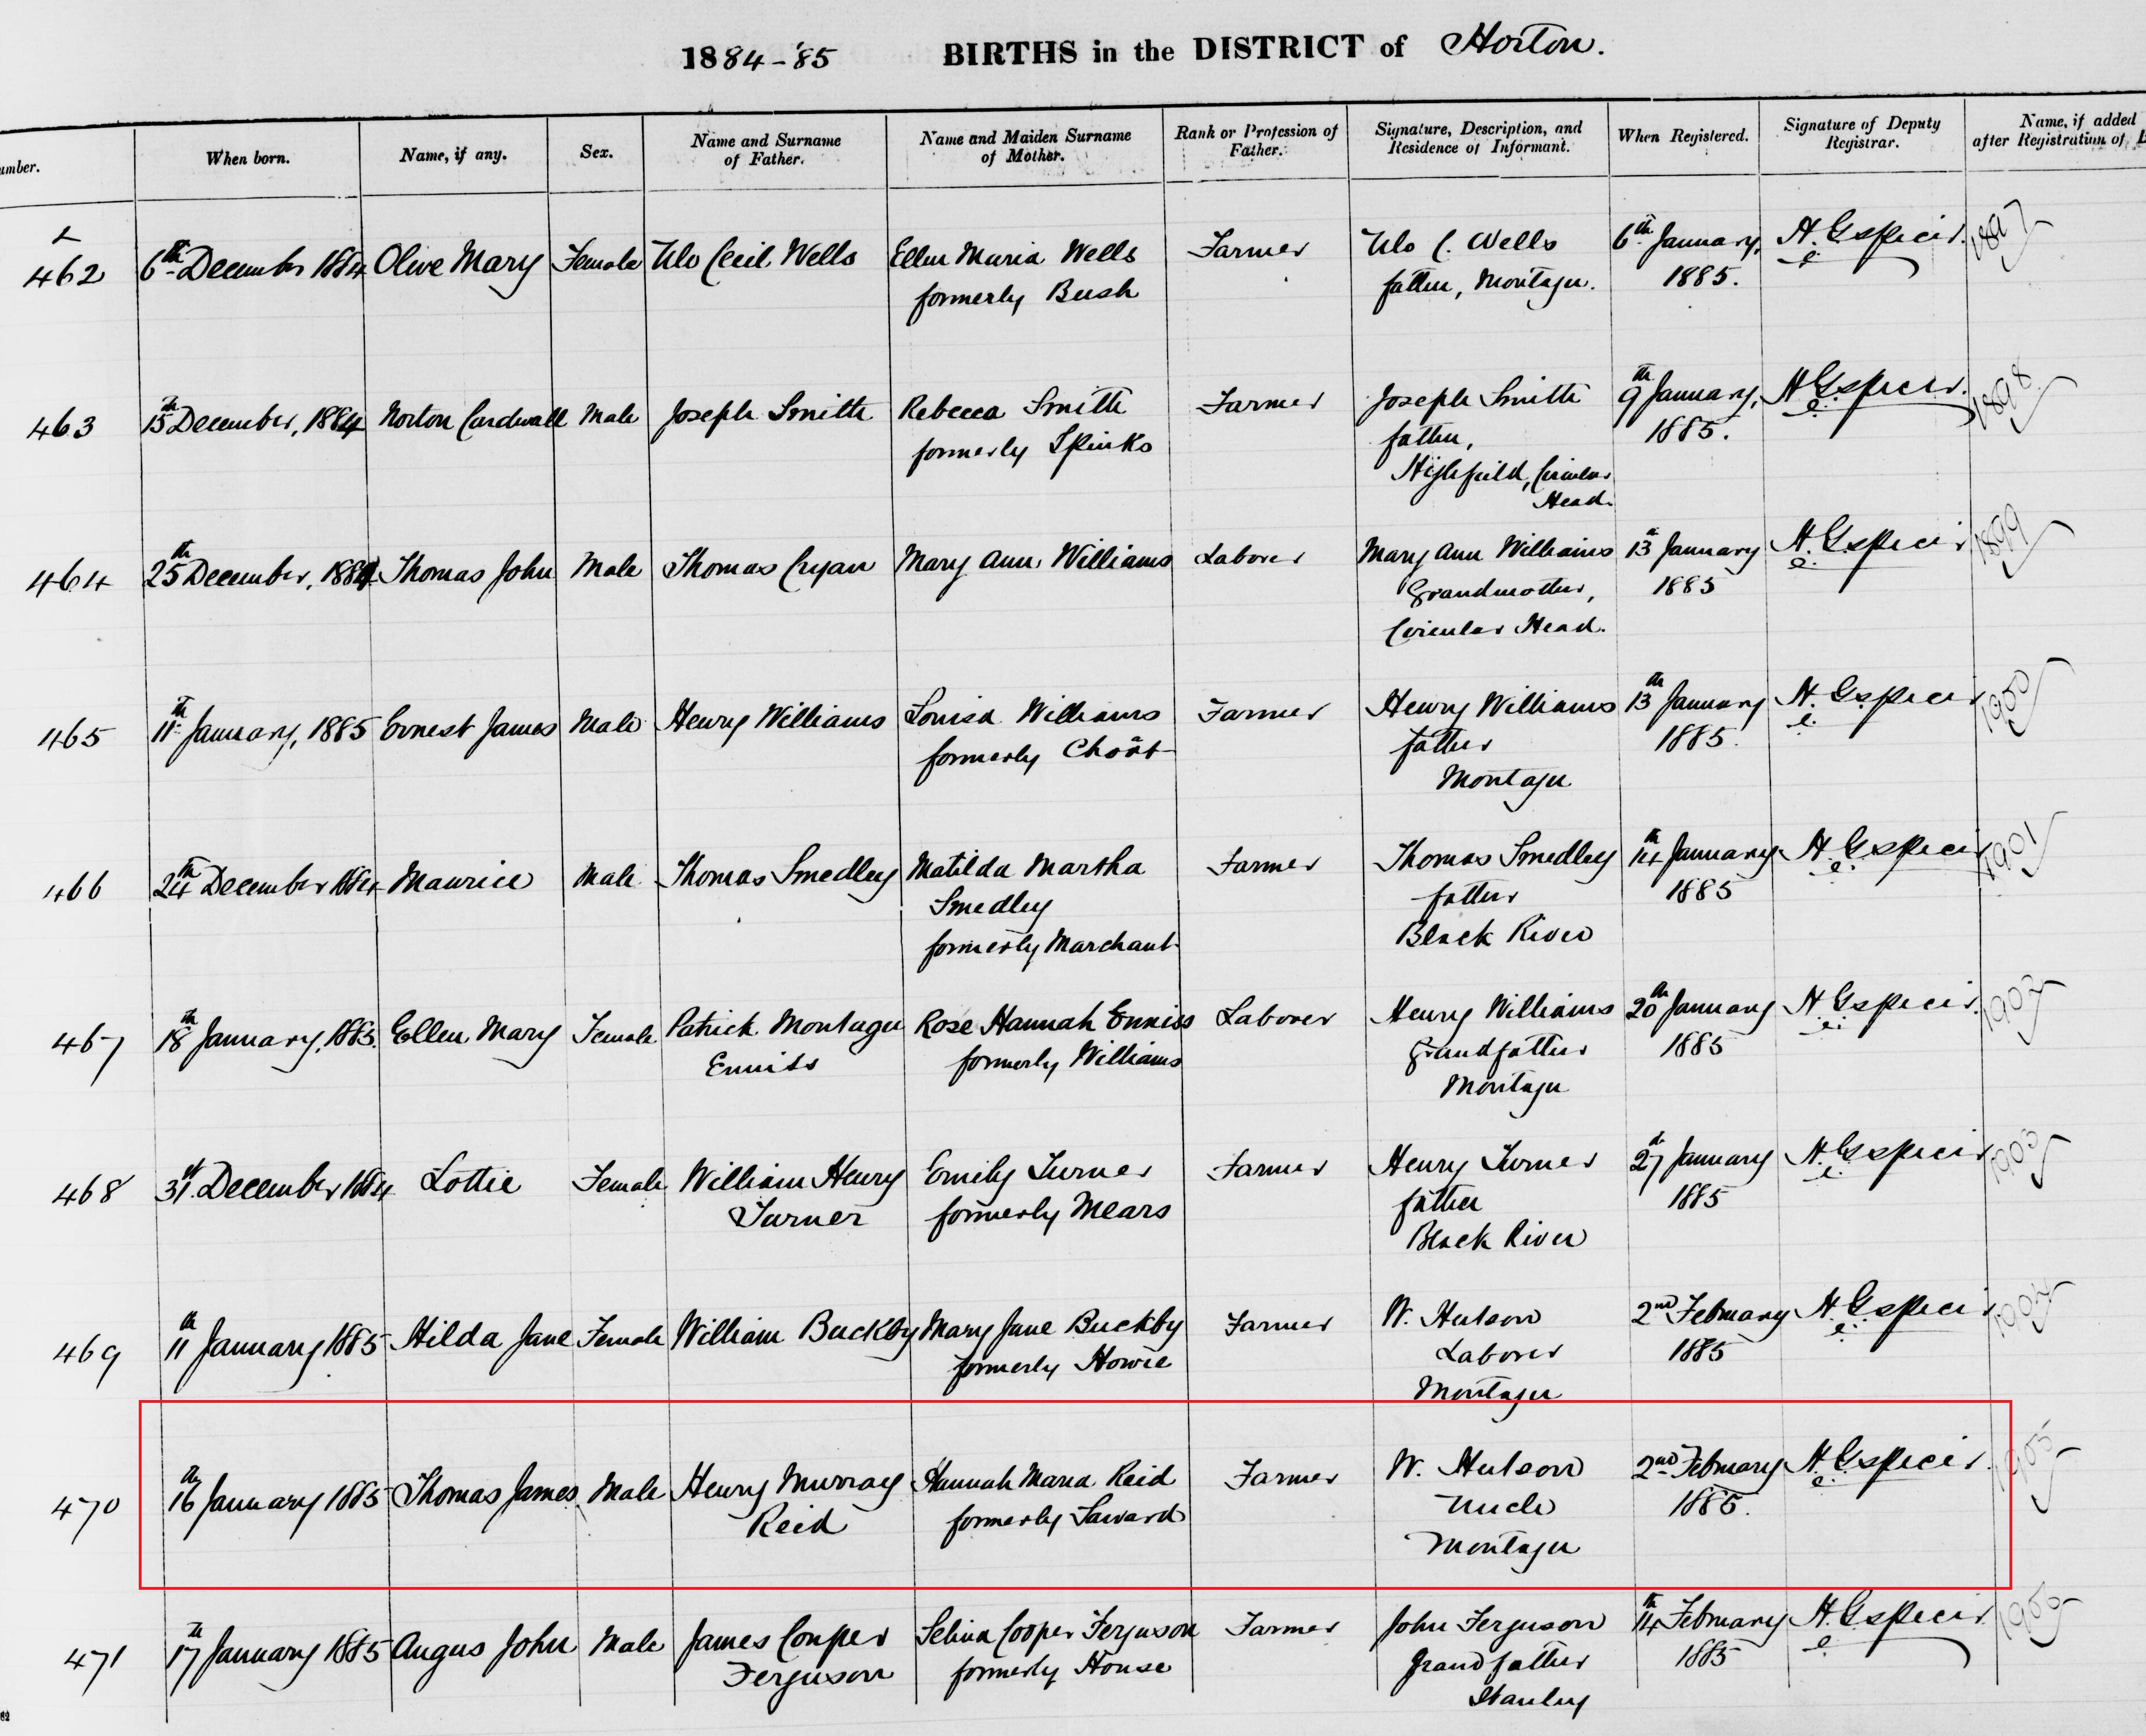 1884-'85 BIRTHS in the DISTRICT of Horton.
umber. When born. Name, if any. Sex. Name and Surname of Father. Name and Maiden Surname of Mother. Rank or Profession of Father. Signature, Description, and Residence of Informant. When Registered. Signature of Deputy Registrar. Name, if added after Registration of
462 6th December 1884 Olive Mary Female Cecil Wells Ellen Maria Wells Farmer C. Wells 6th January,
formerly Bush father, Montagu. 1885. 1897
463 15th December, 1884 Norton Cardwall Male Joseph Smith Rebecca Smith Farmer Joseph Smith 9th January,
formerly Spinks father, 1885. 1898
Highfield, Circular
Head.
464 25th December, 1884 Thomas John Male Thomas Cryan Mary Ann Williams Laborer Mary Ann Williams 13th January
Grandmother, 1885 1899
Circular Head.
465 11th January, 1885 Ernest James Male Henry Williams Louisa Williams Farmer Henry Williams 13th January
formerly father 1885. 1900
Montagu
466 24th December 1884 Maurice Male Thomas Smedley Matilda Martha Farmer Thomas Smedley 14th January
Smedley father 1885 1901
formerly Marchant Black River
467 18th January, 1885. Ellen Mary Female Patrick Montagu Rose Hannah Enniss Laborer Henry Williams 20th January
Enniss formerly Williams Grandfather 1885 1902
Montagu
468 31st December 1884 Lottie Female William Henry Emily Turner Farmer Henry Turner 27th January
Turner formerly Mears father 1885 1903
Black River
469 11th January 1885 Hilda Jane Female William Buckby Mary Jane Buckby Farmer W. Hutson 2nd February
formerly Howie Laborer 1885 1904
Montagu
470 16th January 1885 Thomas James Male Henry Murray Hannah Maria Reid Farmer W. Hutson 2nd February
Reid formerly Saward Uncle 1885. 1905
Montagu
471 17th January 1885 Angus John Male James Couper Selina Cooper Ferguson Farmer John Ferguson 14th February
Ferguson formerly House Grandfather 1885 1906
Stanley